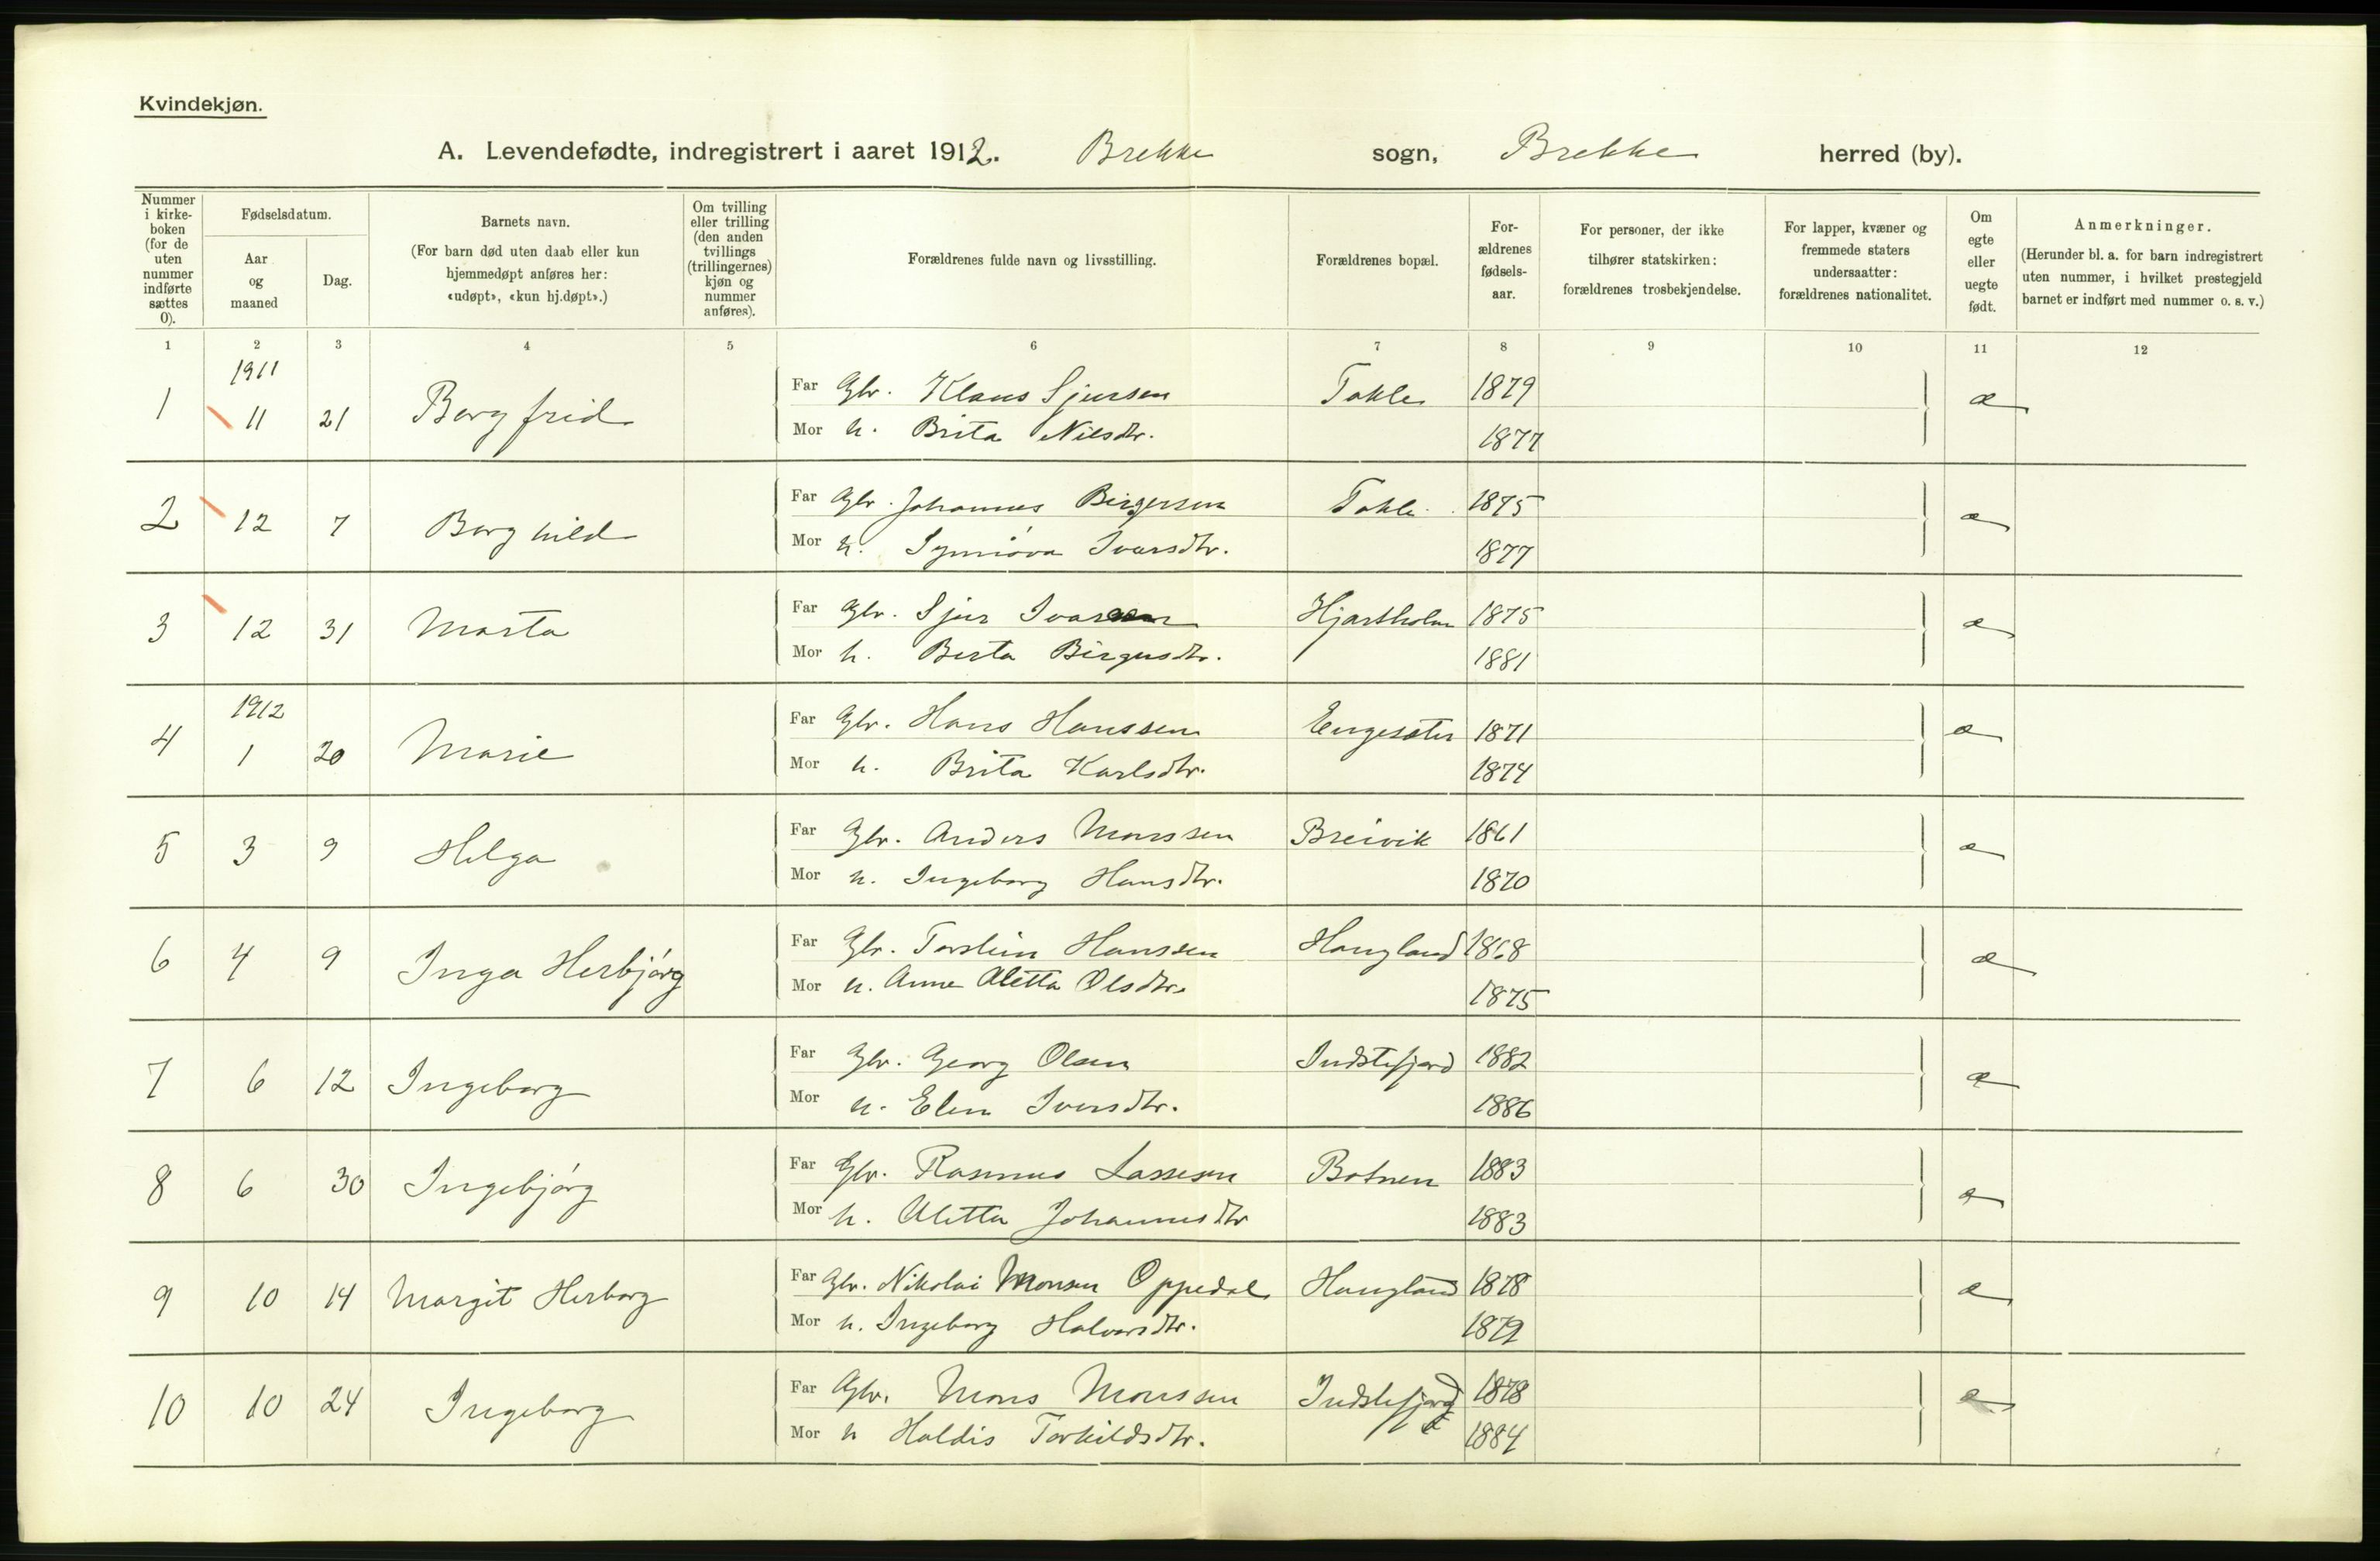 Kvindekjøn.
A. Levendefødte, indregistrert i aaret 1912. Brekke sogn, Brekke herred (by).
Nummer i kirke-boken (for de uten nummer indførte sættes 0).
Fødselsdatum.
Aar og maaned
Dag.
Barnets navn.
(For barn død uten daab eller kun hjemmedøpt anføres her: «udøpt», «kun hj.døpt».)
Om tvilling eller trilling (den anden tvillings (trillingernes) kjøn og nummer anføres).
Forældrenes fulde navn og livsstilling.
Forældrenes bopæl.
For-ældrenes fødsels-aar.
For personer, der ikke tilhører statskirken: forældrenes trosbekjendelse.
For lapper, kvæner og fremmede staters undersaatter: forældrenes nationalitet.
Om egte eller uegte født.
Anmerkninger.
(Herunder bl. a. for barn indregistrert uten nummer, i hvilket prestegjeld barnet er indført med nummer o. s. v.)
1 2 3 4 5 6 7 8 9 10 11 12
1911
1 11 21 Borgfrid Far Gbr. Klaus Sjursen Takle 1879 æ
Mor h. Brita Nilsdtr. 1877
2 12 7 Borghild Far Gbr. Johannes Birgersen Takle 1875 æ
Mor h. Synnöva Ivarsdtr. 1877
3 12 31 Marta Far Gbr. Sjur Ivarsen Hjartholm 1875 æ
Mor h. Berta Birgersdtr. 1881
1912
4 1 20 Marie Far Gbr. Hans Hanssen Engesæter 1871 æ
Mor h. Brita Karlsdtr. 1874
5 3 9 Helga Far Gbr. Anders Monssen Breivik 1861 æ
Mor h. Ingeborg Hansdtr. 1870
6 4 9 Inga Herbjörg Far Gbr. Torstein Hanssen Haugland 1868 æ
Mor h. Anne Aletta Olsdtr. 1875
7 6 12 Ingeborg Far Gbr. Georg Olsen Indstefjord 1882 æ
Mor h. Elen Iversdtr. 1886
8 6 30 Ingebjörg Far Gbr. Rasmus Lassesen Botnen 1883 æ
Mor h. Aletta Johannesdtr 1883
9 10 14 Margit Herborg Far Gbr. Nikolai Monsen Oppedal Haugland 1878 æ
Mor h. Ingeborg Halvorsdtr. 1879
10 10 24 Ingeborg Far Gbr. Mons Monssen Indstefjord 1878 æ
Mor h Haldis Torkildsdtr. 1884